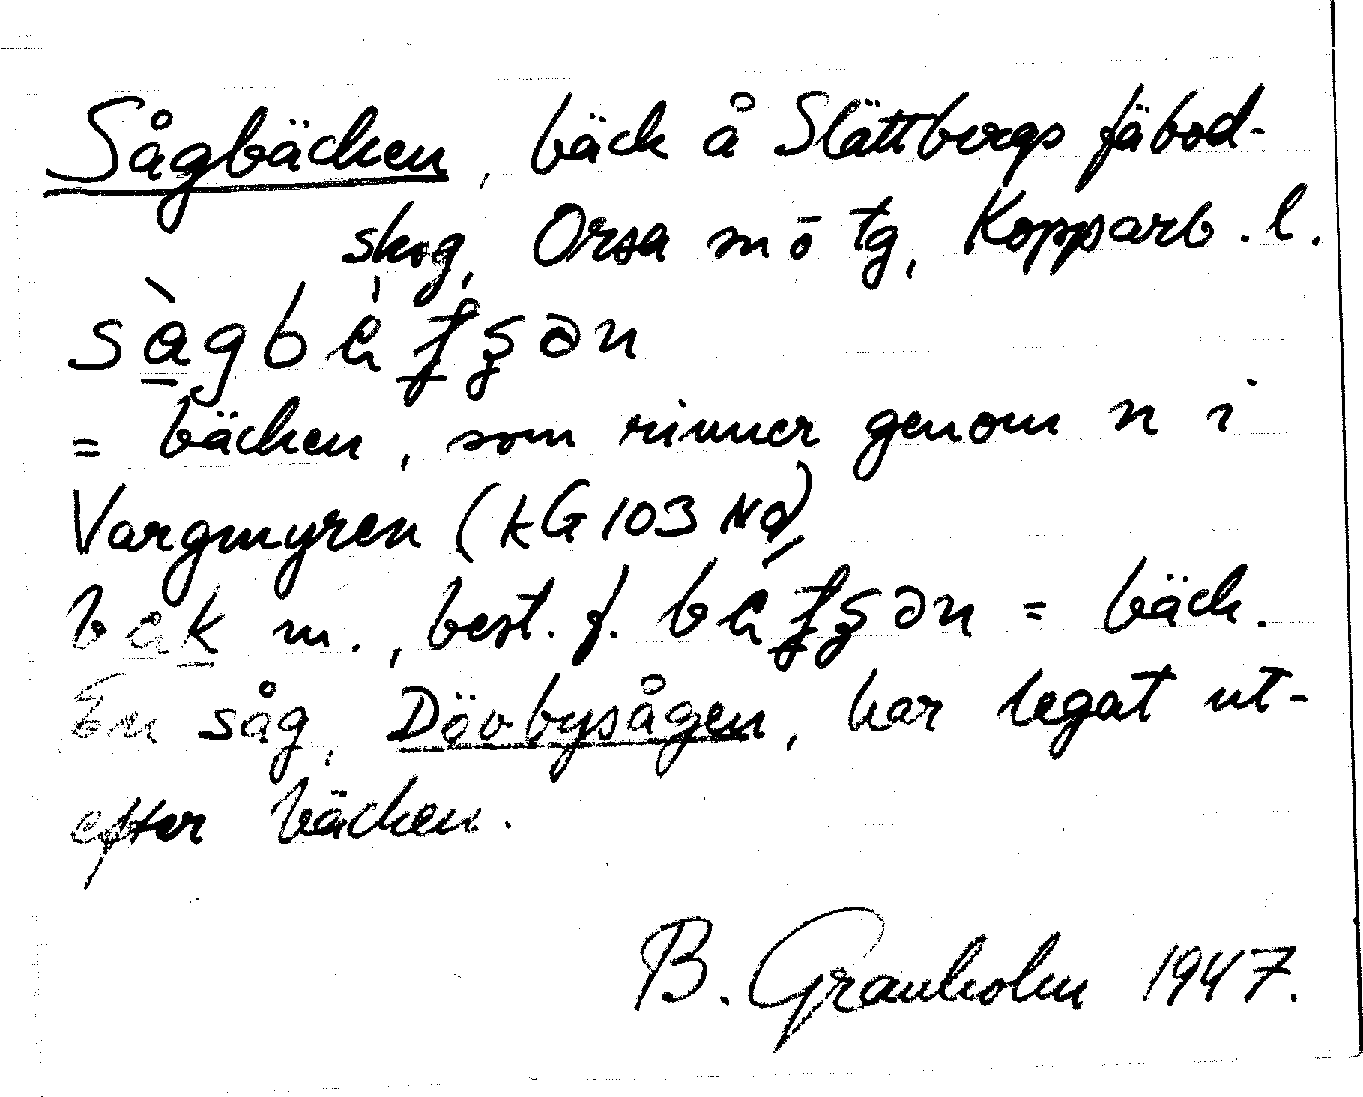 Sågbäcken, bäck å Slättbergs fäbod-
skog, Orsa sn o tg, Kopparb. l.
= bäcken, som rinner genom n i
Vargmyren (kG 103 Nd)
m., best. f. = bäck.
En såg, Dövbysågen, har legat ut-
efter bäcken.
B. Granholm 1947.